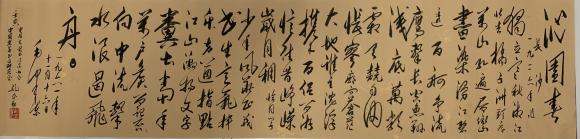 沁园春
长沙
独立寒秋湘江
北去橘子洲头看
万山红遍层林
尽染漫江碧
透百舸争流
鹰击长空鱼翔
浅底万类
霜天竞自由
怅寥廓问苍茫
大地谁主沉浮
携来百侣曾游
忆往昔峥嵘
岁月稠恰同学
少年风华正茂
书生意气挥
斥方遒指点
江山激扬文字
粪土当年
万户侯曾记否
到中流击
水浪遏飞
舟